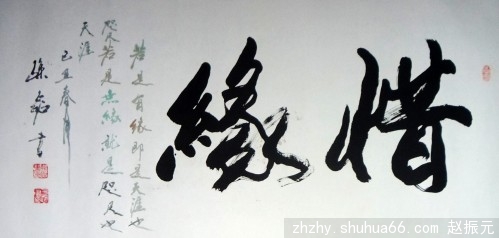 惜緣
若是有缘即是天涯也
咫尺若是无缘就是咫尺也
天涯
己丑春月
書
zhzhy.shuhua66.com 赵振元